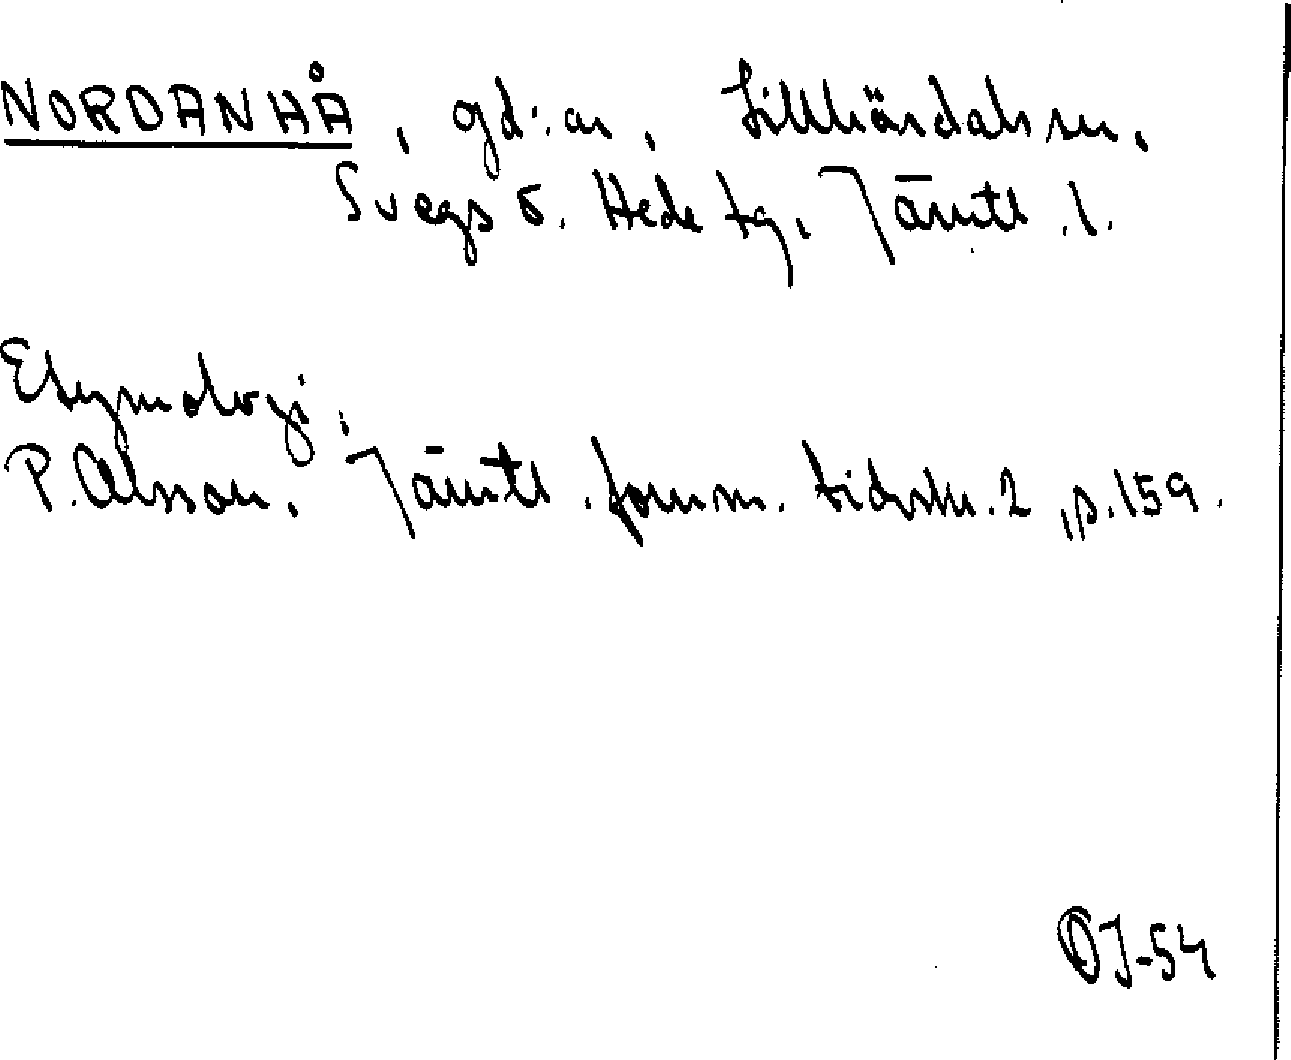 NORDANHÅ, gd:ar, Lillhärdals sn,
Svegs o. Hede tg, Jämtl. l.
Etymologi,
P. Olsson, Jämtl. fornm. tidskr. 2, p. 159.
OJ-54